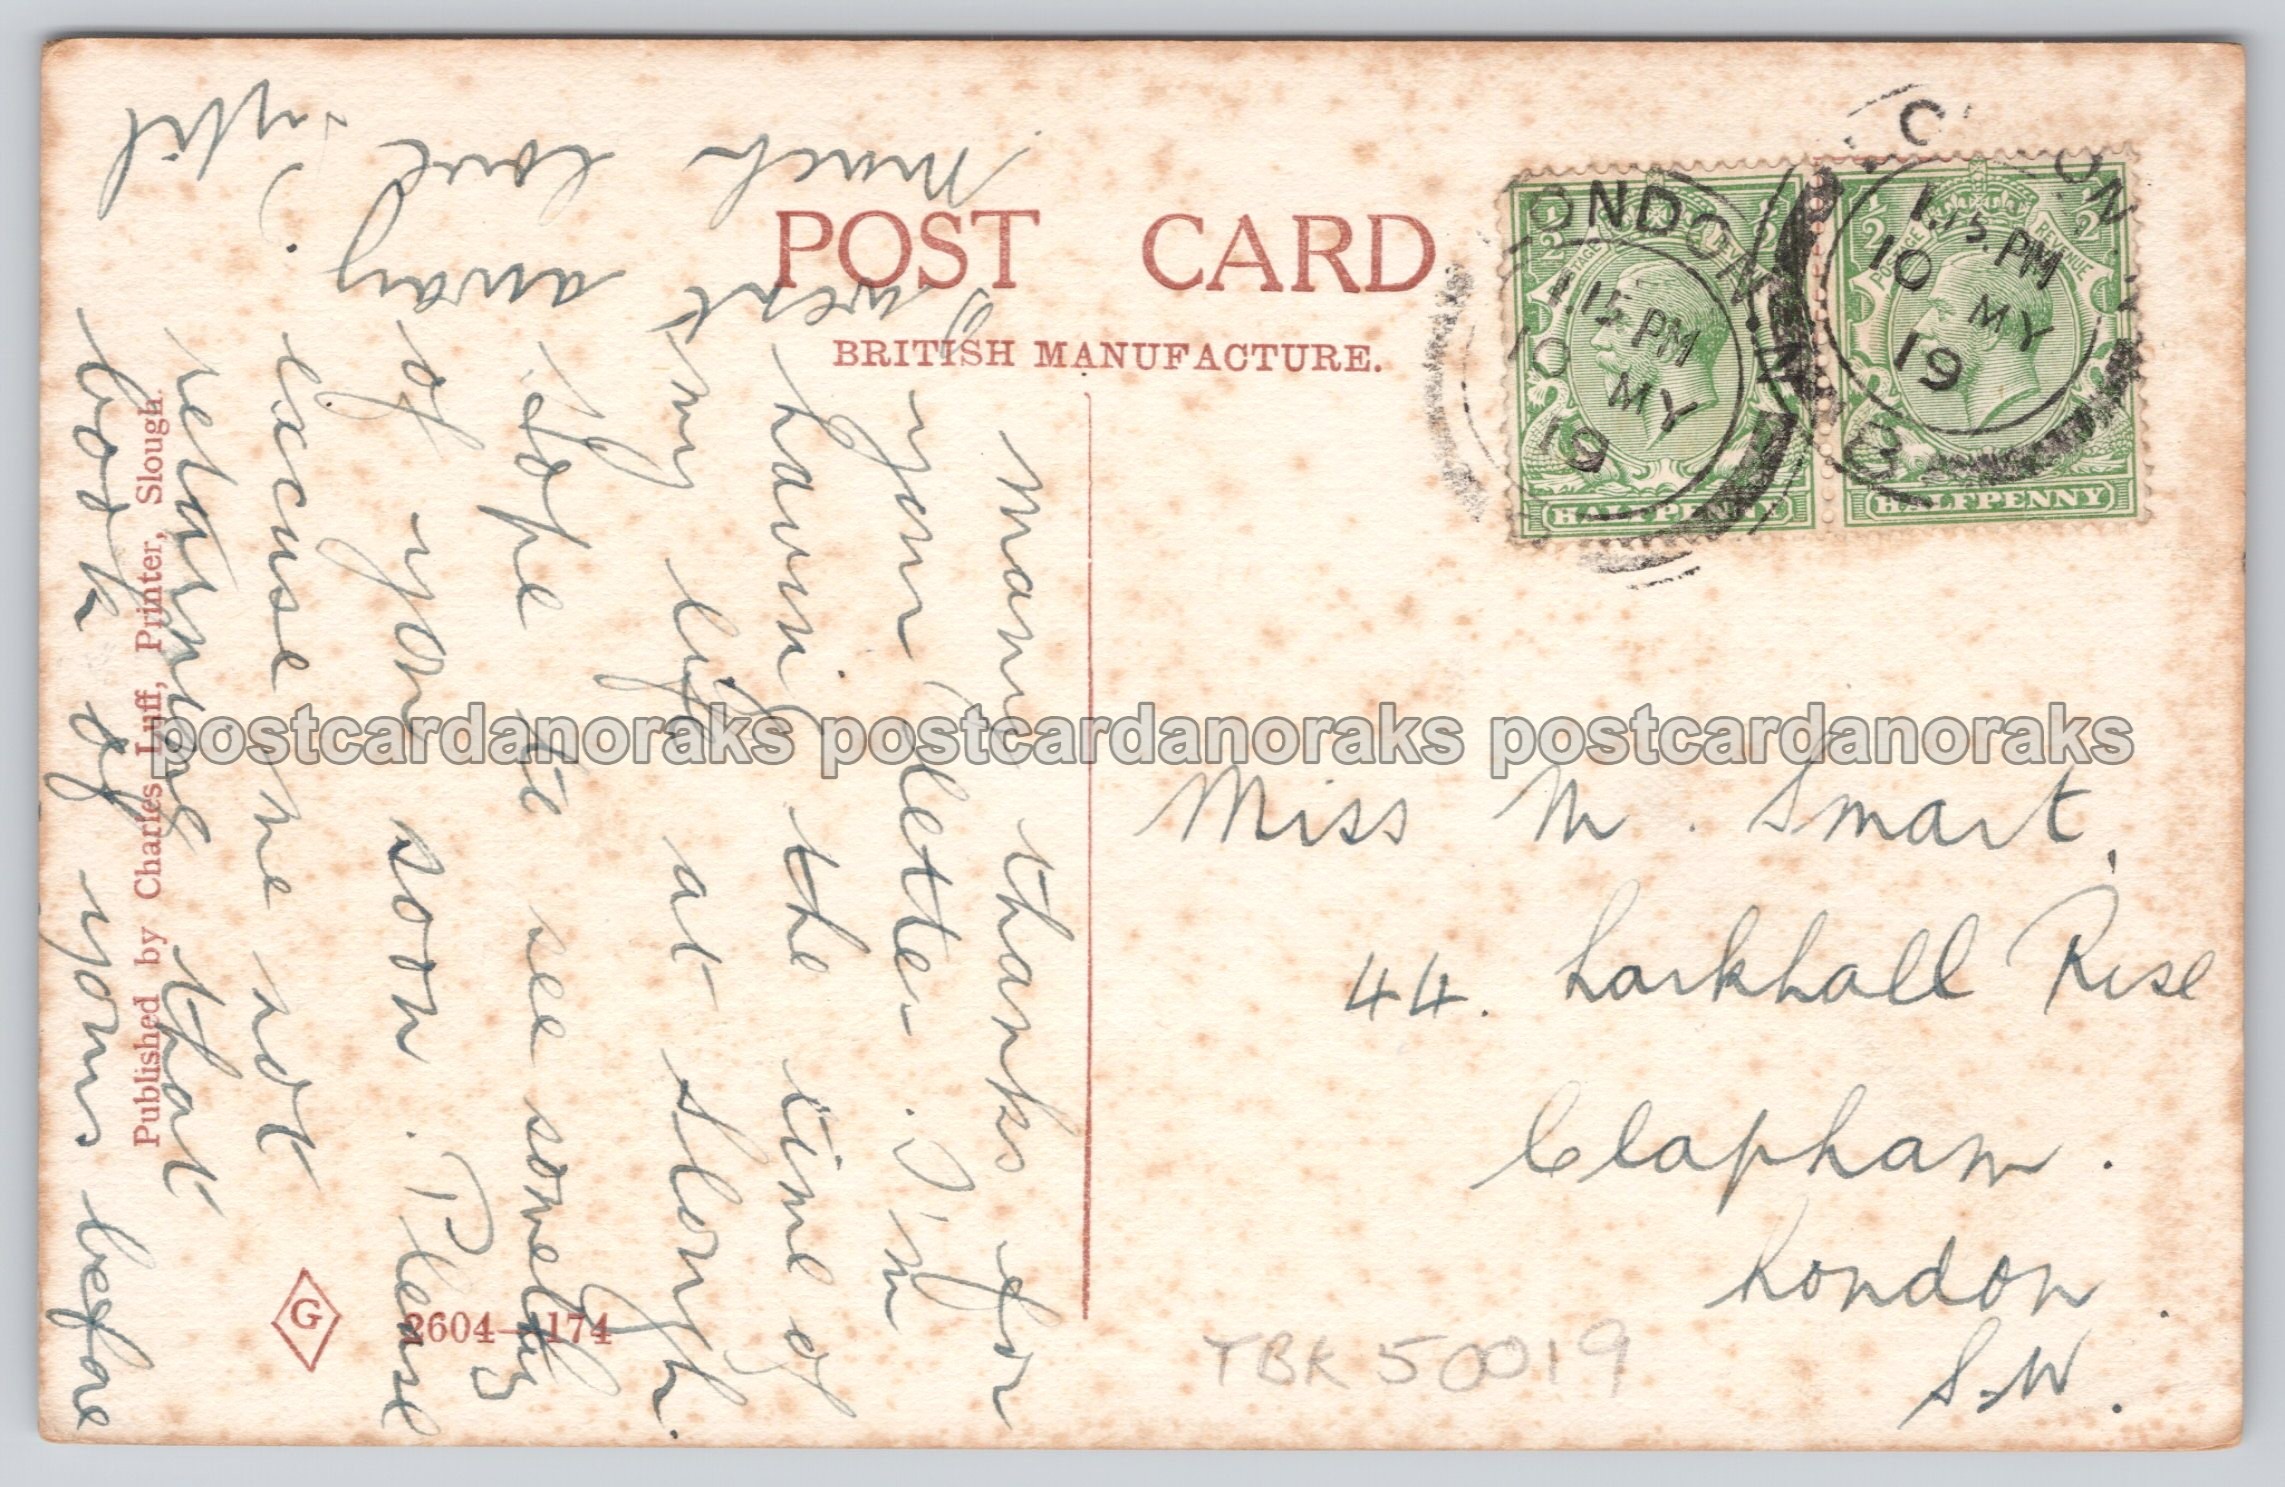 POST CARD
BRITISH MANUFACTURE.
LONDON. N
1.15 PM
10 MY
19
LONDON. N
1.15 PM
10 MY
19
POSTAGE REVENUE
HALFPENNY
POSTAGE REVENUE
HALFPENNY
Many thanks for
your letter. I'm
having the time of
my life at Slough.
Hope to see something
of you soon. Please
excuse me not
returning that
book of yours before
I went
away
much love
Miss M. Smart,
44. Larkhall Rise
Clapham.
London.
S.W.
Published by Charles Luff, Printer, Slough.
G
2604—174
TBK 50019
postcardanoraks postcardanoraks postcardanoraks